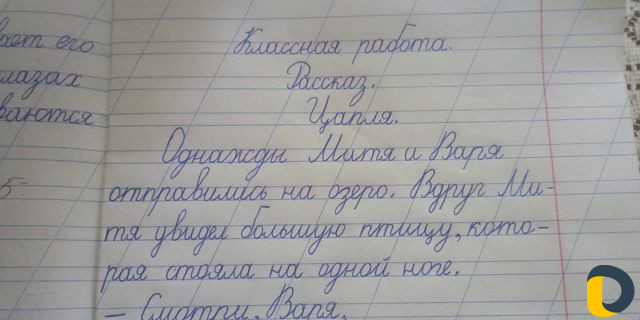 Классная работа.
Рассказ.
Цапля.
Однажды Митя и Варя
отправились на озеро. Вдруг Ми-
тя увидел большую птицу, кото-
рая стояла на одной ноге.
– Смотри, Варя,
его
лазах
ваются
5-